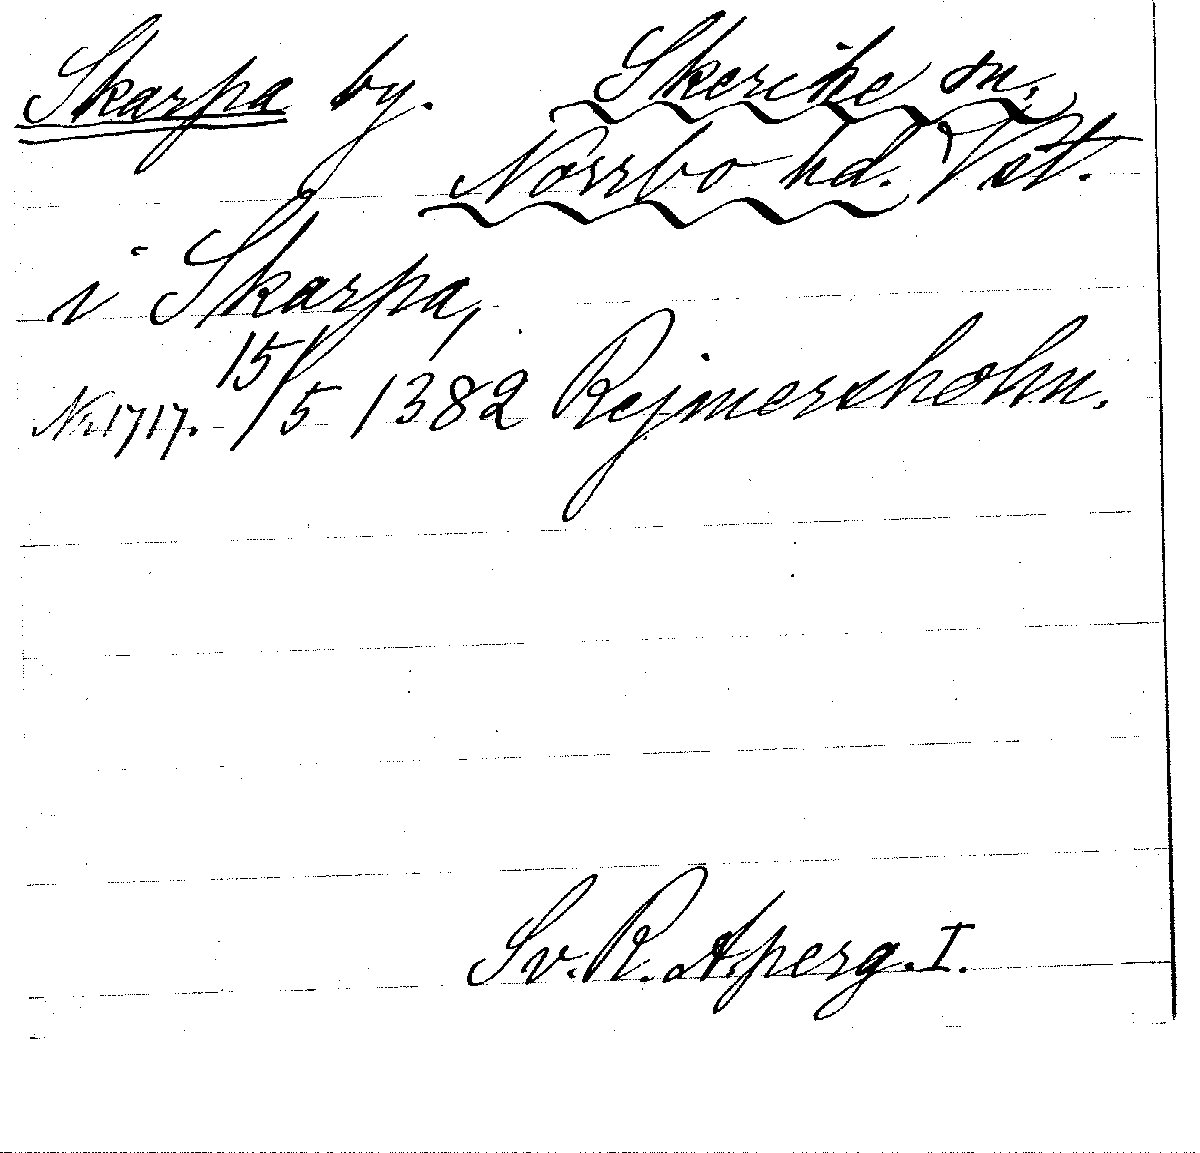 Skarpa by. Skerike sn.
Norrbo hd. Vst.
i Skarpa,
Nr. 1717. 15/5 1382 Rejmersholm.
Sv. R. A. perg. I.